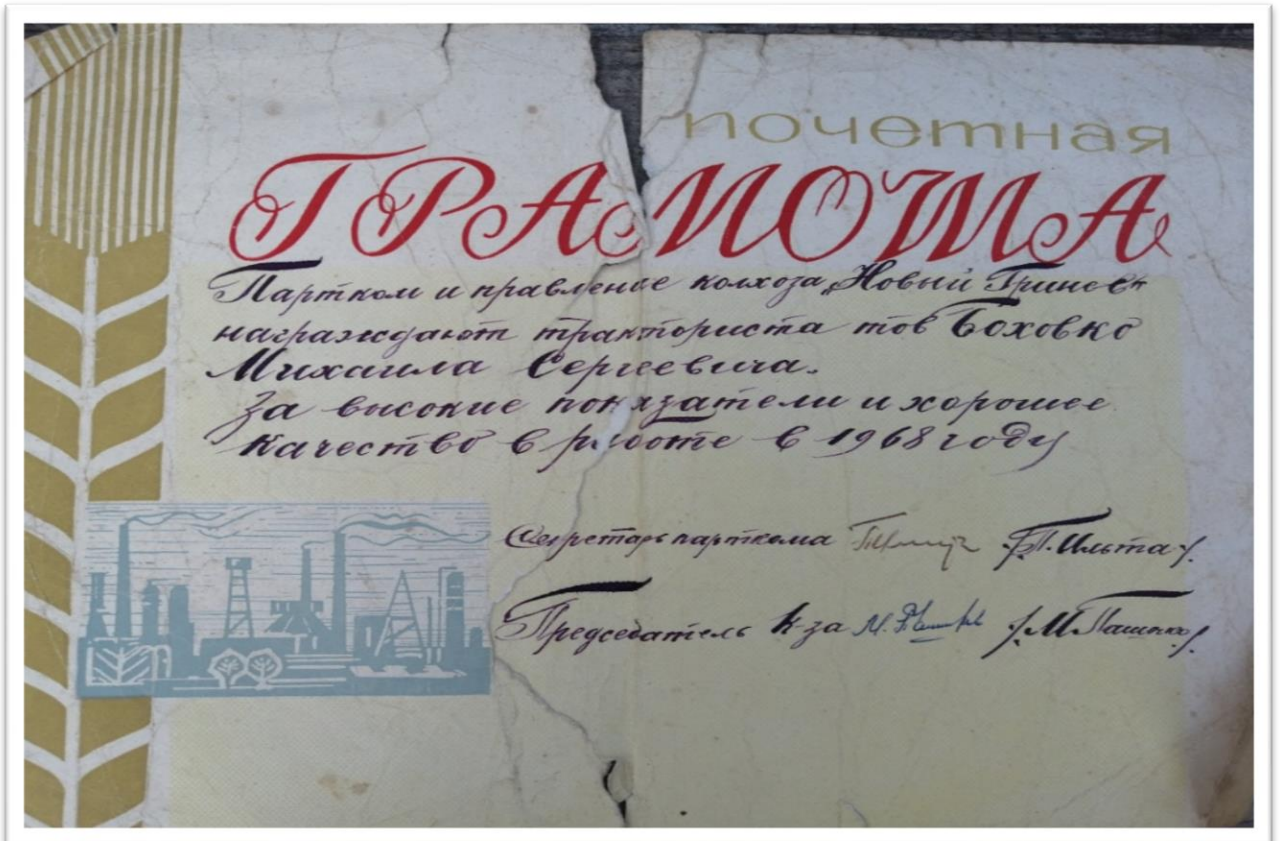 почетная
ГРАМОТА
Партком и правление колхоза „Новый Гринев"
награждают тракториста тов Боховко
Михаила Сергеевича.
За высокие показатели и хорошее
качество в работе в 1968 году
Секретарь парткома /П. Ильта/.
Председатель к-за М. Пашко /М Пашко/.